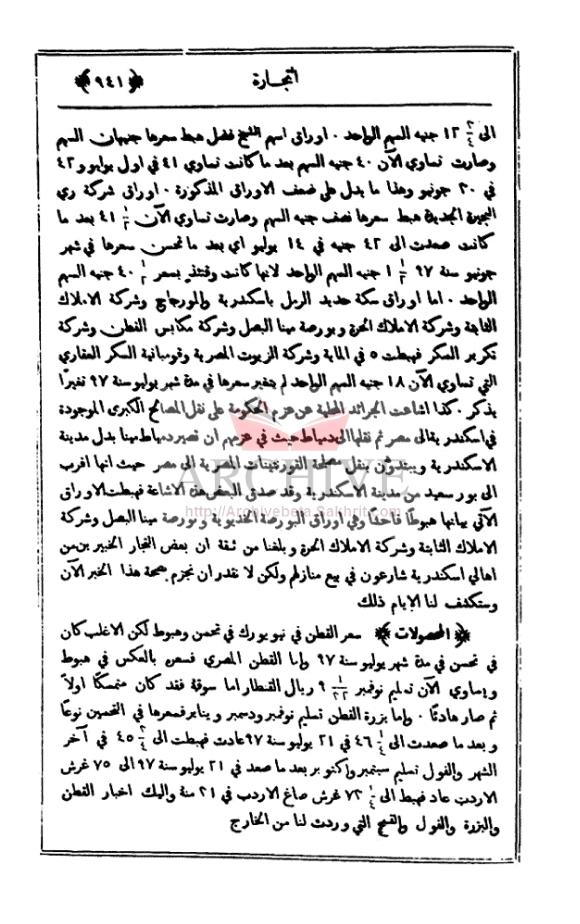 ﴿٩٤١﴾
التجارة
الى ٣/٤ ١٢ جنيه السهم الواحد ٠ اوراق اسهم الفضل هبط سعرها جنيهان السهم
وصارت تساوي الآن ٤٠ جنيه السهم بعد ما كانت تساوي ٤١ في اول يوليو و ٤٢
في ٢٠ جونيو وهذا ما يدل على ضعف الاوراق المذكورة ٠ اوراق شركة ري
البحيرة الجديدة هبط سعرها نصف جنيه السهم وصارت تساوي الآن ١/٢ ٤١ بعد ما
كانت صعدت الى ٤٢ جنيه في ١٤ يوليو اي بعد ما تحسن سعرها في شهر
جونيو سنة ٩٧ ١/٢ ١ جنيه السهم الواحد لانها كانت وقتئذ بسعر ١/٢ ٤٠ جنيه السهم
الواحد ٠ اما اوراق سكة حديد الرمل باسكندرية والمورجاج وشركة الاملاك
الثابتة وشركة الاملاك الحرة وبورصة مينا البصل وشركة مكابس القطن وشركة
تكرير السكر فهبطت ٥ في الماية وشركة الزيوت المصرية وقومبانية السكر العقاري
التي تساوي الآن ١٨ جنيه السهم الواحد لم يتغير سعرها في مدة شهر يوليو سنة ٩٧ تغيرًا
يذكر ٠ كذا اشاعت الجرائد المحلية عن عزم الحكومة على نقل المصالح الكبرى الموجودة
في اسكندرية الى مصر ثم نقلها الى دمياط حيث في عزمهم ان تصير دمياط مينا بدل مدينة
الاسكندرية ويبتدئون بنقل مصلحة القورنتينات المصرية الى مصر حيث انها اقرب
الى بور سعيد من مدينة الاسكندرية وقد صدق البعض هذه الاشاعة فهبطت الاوراق
الآتي بيانها هبوطًا فاحشًا وهي اوراق البورصة الخديوية وبورصة مينا البصل وشركة
الاملاك الثابتة وشركة الاملاك الحرة وبلغنا من ثقة ان بعض التجار الخبيرين من
اهالي اسكندرية شارعون في بيع منازلهم ولكن لا نقدر ان نجزم بصحة هذا الخبر الآن
وستكشف لنا الايام ذلك
﴿ المحصولات ﴾ سعر القطن في نيويورك في تحسن وهبوط لكن الاغلب كان
في تحسن في مدة شهر يوليو سنة ٩٧ واما القطن المصري فسعره بالعكس في هبوط
ويساوي الآن تسليم نوفمبر ٩ ريال القنطار اما سوقه فقد كان متمسكًا اولاً
ثم صار هادئًا ٠ واما بزرة القطن تسليم نوفمبر ودسمبر ويناير فسعرها في التحسين نوعًا
وبعد ما صعدت الى ١/٤ ٤٦ في ٢١ يوليو سنة ٩٧ عادت فهبطت الى ٣/٤ ٤٥ في آخر
الشهر والفول تسليم سبتمبر واكتوبر بعد ما صعد في ٢١ يوليو سنة ٩٧ الى ٧٥ غرش
الاردب عاد فهبط الى ١/٤ ٧٣ غرش صاغ الاردب في ٣١ منة واليك اخبار القطن
والبزرة والفول والقمح التي وردت لنا من الخارج
ARCHIVE
http://Archivebeta.Sakhrit.com